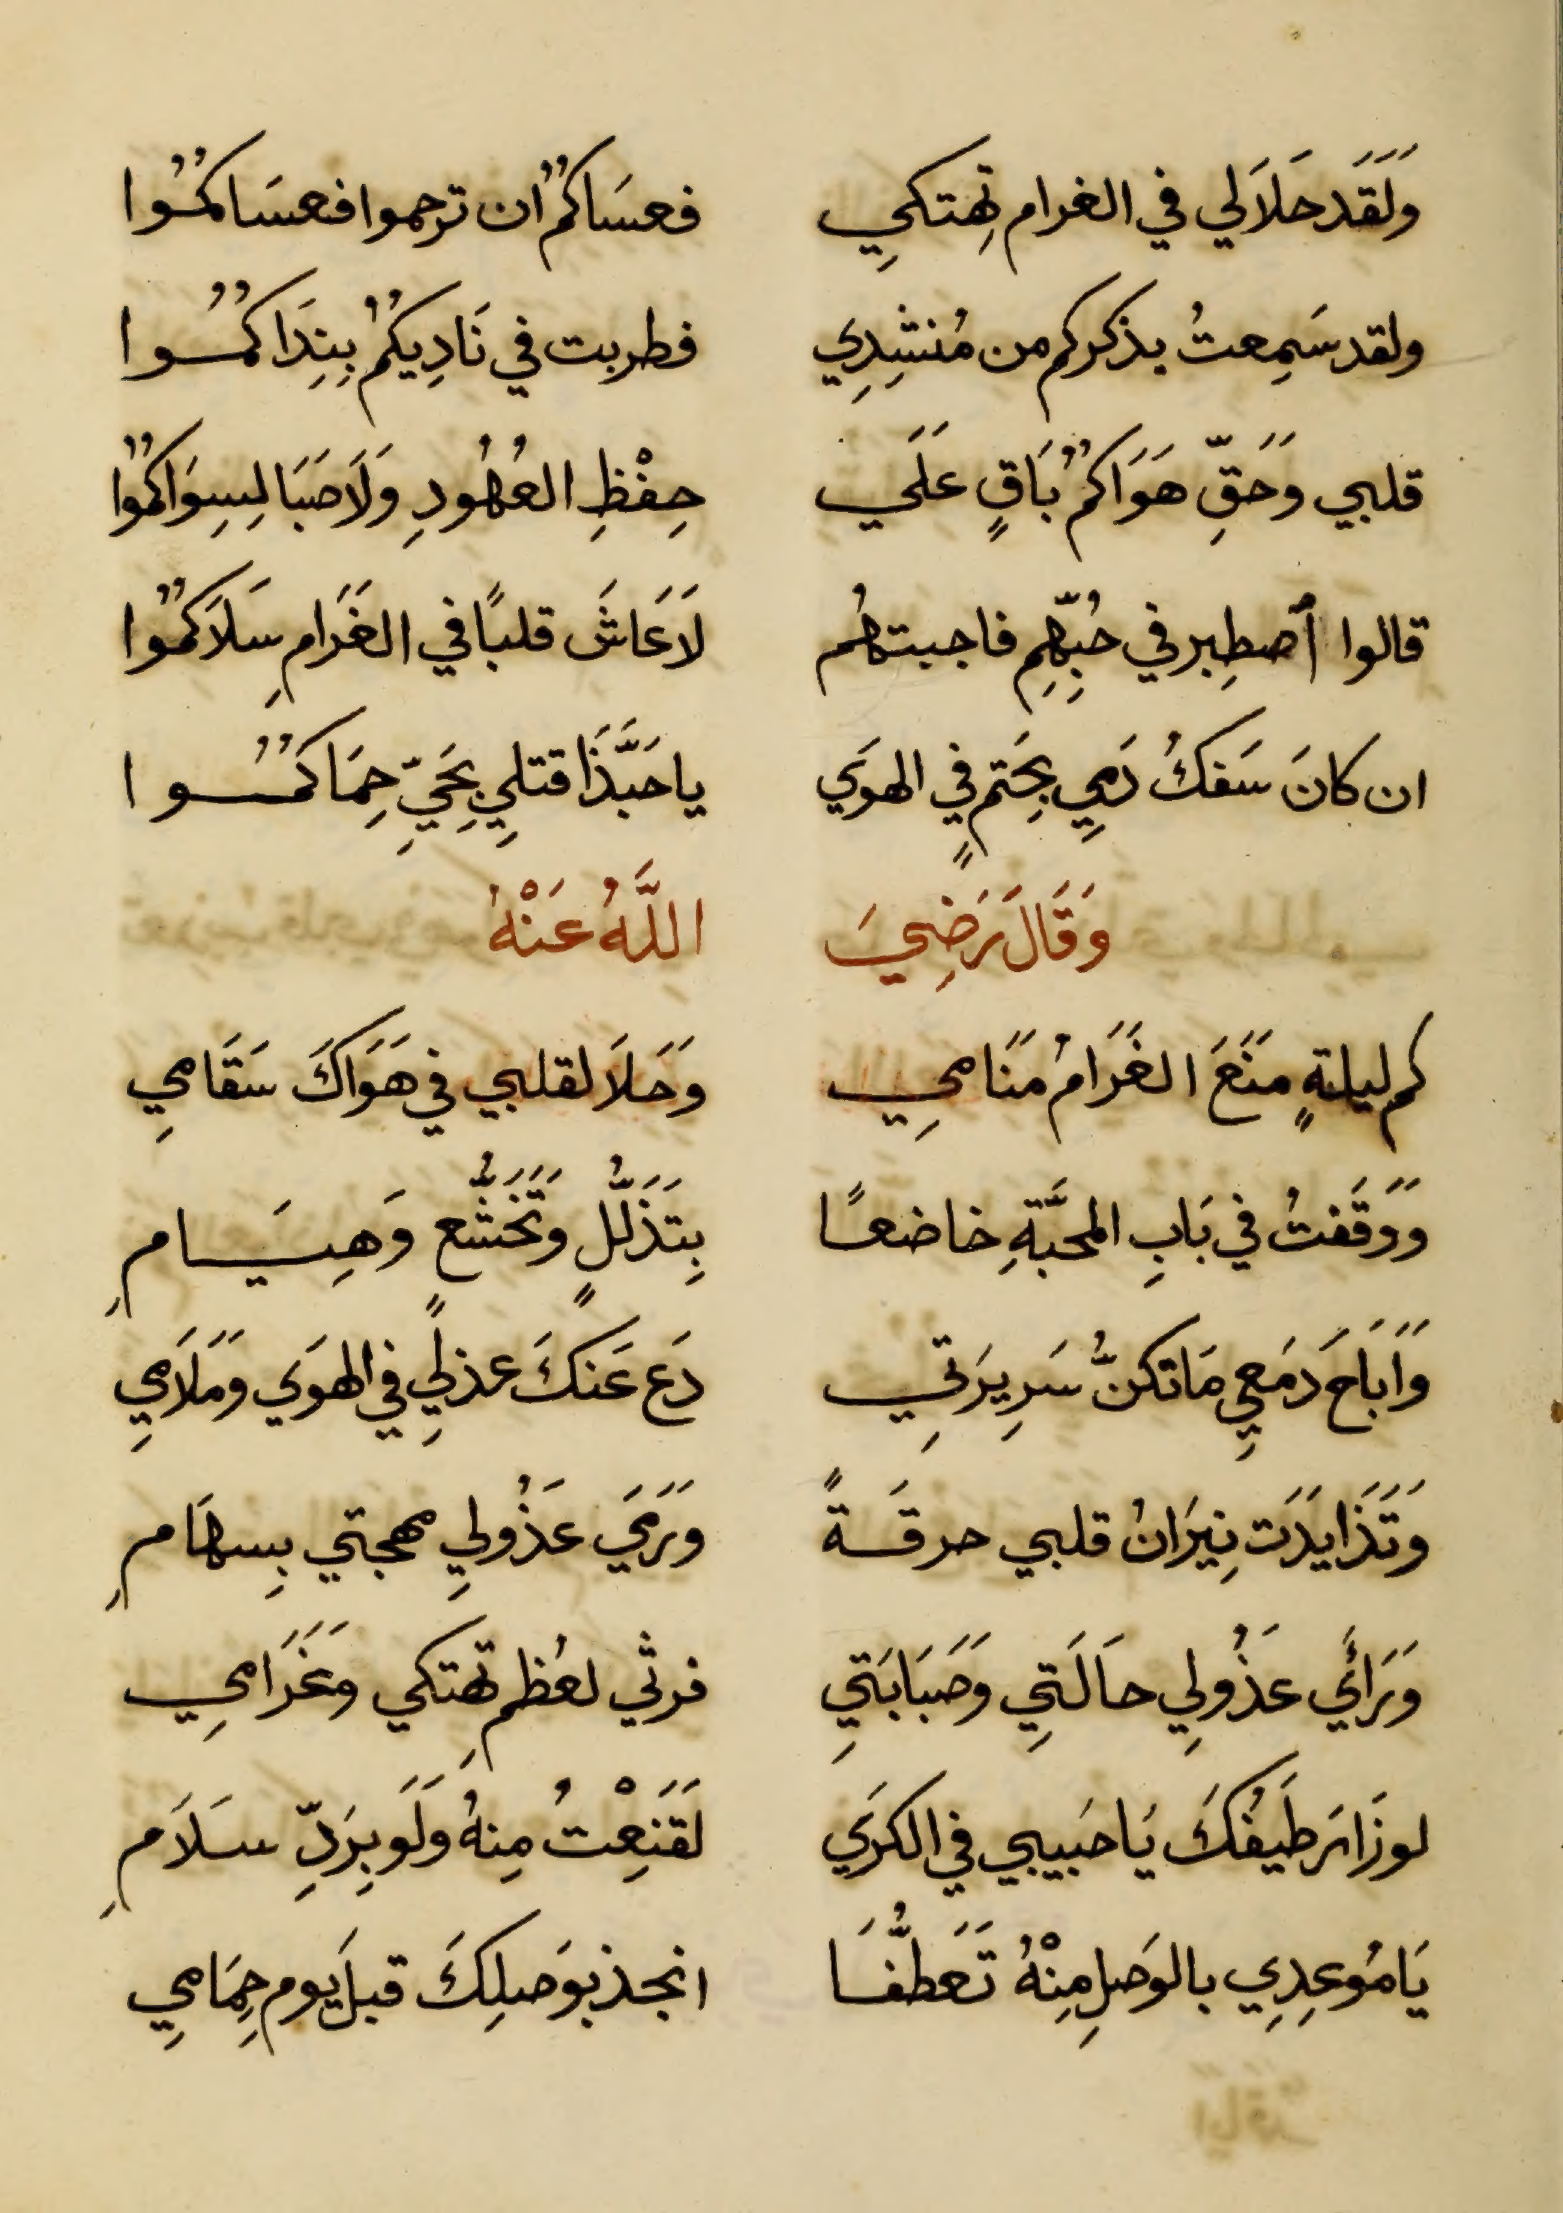 وَلَقَد حَلَا لي في الغرام تهتكِي فعسَاكُمُ ان ترحموا فعسَاكُمُوا
ولقد سَمِعتُ بذكركم من مُنشِدِي فطربت في نَادِيكُمُ بِنِدَاكُمُوا
قلبي وَحَقِّ هَوَاكُمُ بَاقٍ عَلَي حِفْظِ العُهُودِ وَلَا صَبَا لِسِوَاكُمُوا
قالوا أصطِبر في حُبِّهِم فاجبتهُم لَا عَاشَ قلبًا في الغَرَامِ سَلَاكُمُوا
ان كانَ سَفكُ دَمِي بحَتمٍ في الهوَي يا حَبَّذَا قتلِي بحَيِّ حِمَاكُمُوا
وَقَالَ رَضِيَ اللَّهُ عَنْهُ
كم ليلةٍ مَنَعَ الغَرَامُ مَنَامِي وَحَلَا لقلبي في هَوَاكَ سَقَامِي
وَوَقَفتُ في بَابِ المحَبَّةِ خاضعًا بِتَذَلُّلٍ وَتَخَشُّعٍ وَهِيَامِ
وَاَبَاحَ دَمَعِي مَا تكنُّ سَرِيرَتِي دَع عَنكَ عذلِي في الهوَي وَمَلَامِي
وَتَذَايَدَت نِيرَانُ قلبي حرقَةً وَرَمَي عَذُولِي مهجتي بِسِهَامِ
وَرَائَي عَذُولِي حَالَتِي وَصَبَابَتِي فرثي لعُظمِ تهتكي وَغَرَامِي
لو زَارَ طَيفُكَ يَا حَبيبي في الكرَي لَقَنِعْتُ مِنهُ وَلَو بِرَدِّ سَلَامِ
يَا مُوعِدِي بالوَصلِ مِنْهُ تَعَطُّفَا انجذ بوَصلِكَ قبلَ يوم حِمَامِي